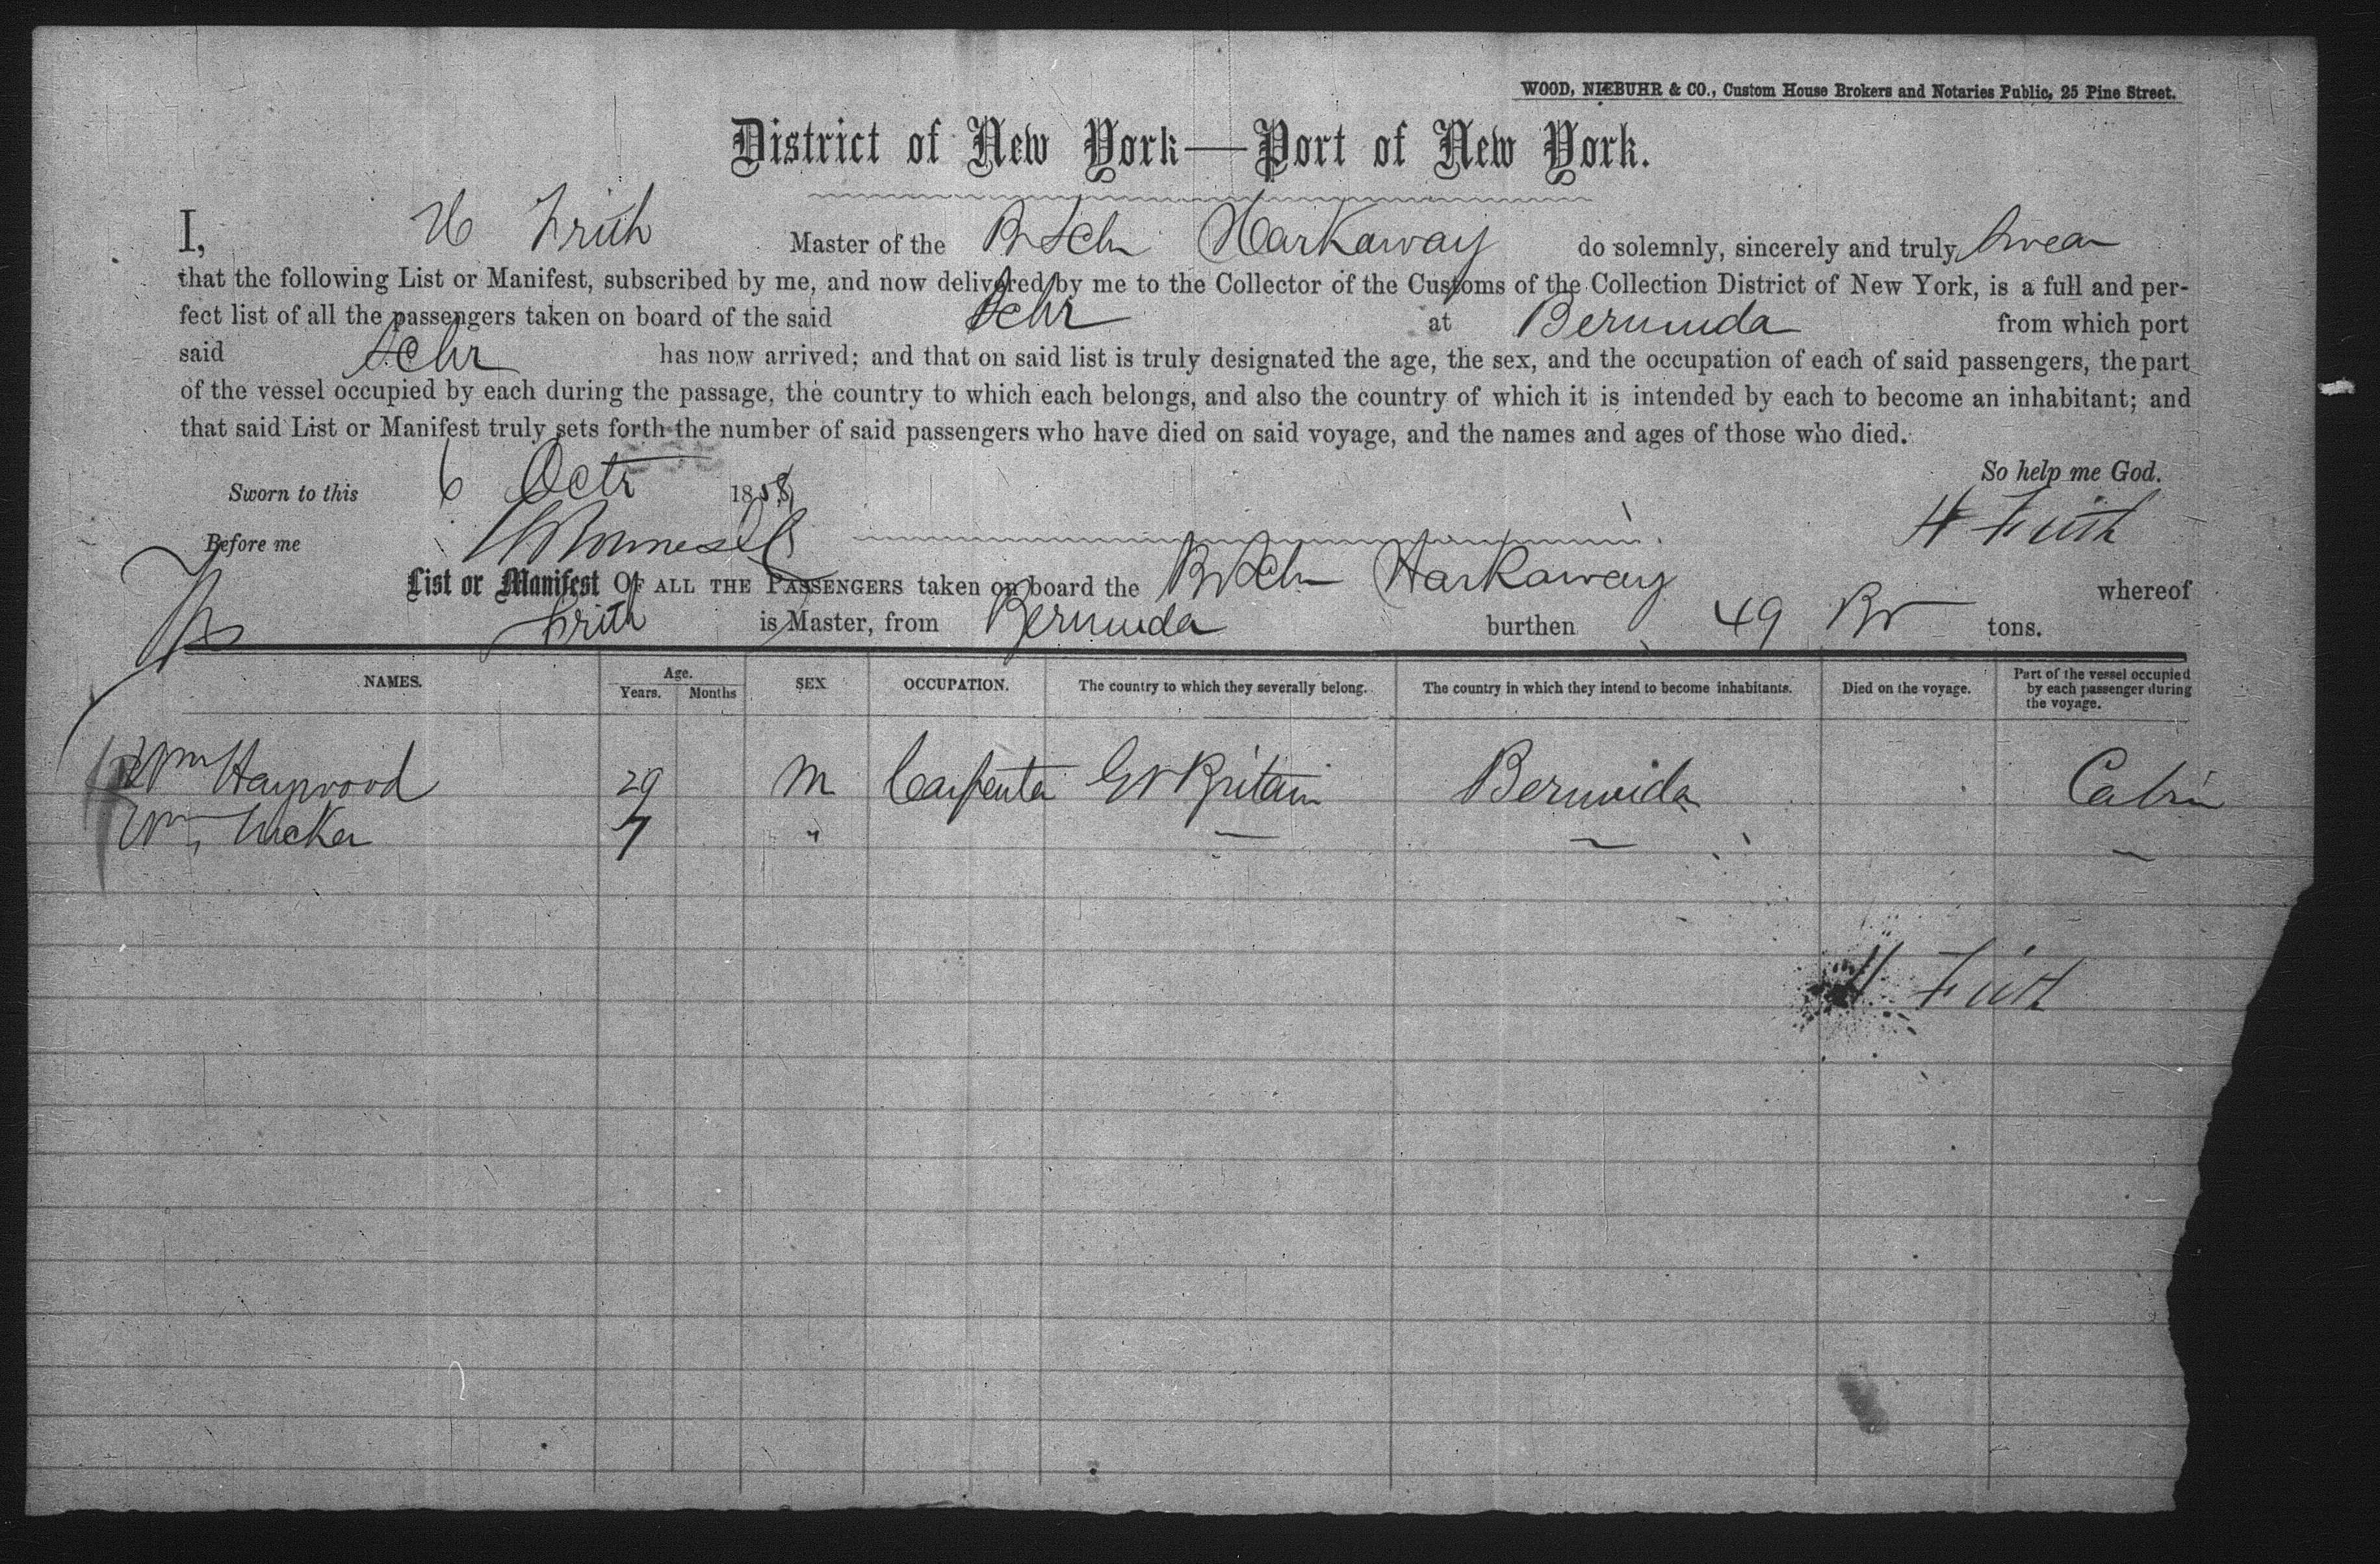 WOOD, NIEBUHR & CO., Custom House Brokers and Notaries Public, 25 Pine Street.
District of New York—Port of New York.
I, H Frith Master of the Br Schr Harkaway do solemnly, sincerely and truly Swear
that the following List or Manifest, subscribed by me, and now delivered by me to the Collector of the Customs of the Collection District of New York, is a full and per-
fect list of all the passengers taken on board of the said Schr at Bermuda from which port
said Schr has now arrived; and that on said list is truly designated the age, the sex, and the occupation of each of said passengers, the part
of the vessel occupied by each during the passage, the country to which each belongs, and also the country of which it is intended by each to become an inhabitant; and
that said List or Manifest truly sets forth the number of said passengers who have died on said voyage, and the names and ages of those who died.
So help me God.
Sworn to this 6 Octr 1858
H Frith
Before me
List or Manifest OF ALL THE PASSENGERS taken on board the Br Schr Harkaway whereof
Frith is Master, from Bermuda burthen 49 Br tons.
NAMES. Age. Years. Months SEX OCCUPATION. The country to which they severally belong. The country in which they intend to become inhabitants. Died on the voyage. Part of the vessel occupied by each passenger during the voyage.
Wm Haywood 29 M Carpenter Gt Britain Bermuda Cabin
Wm Tucker 7 " — — —
H Frith